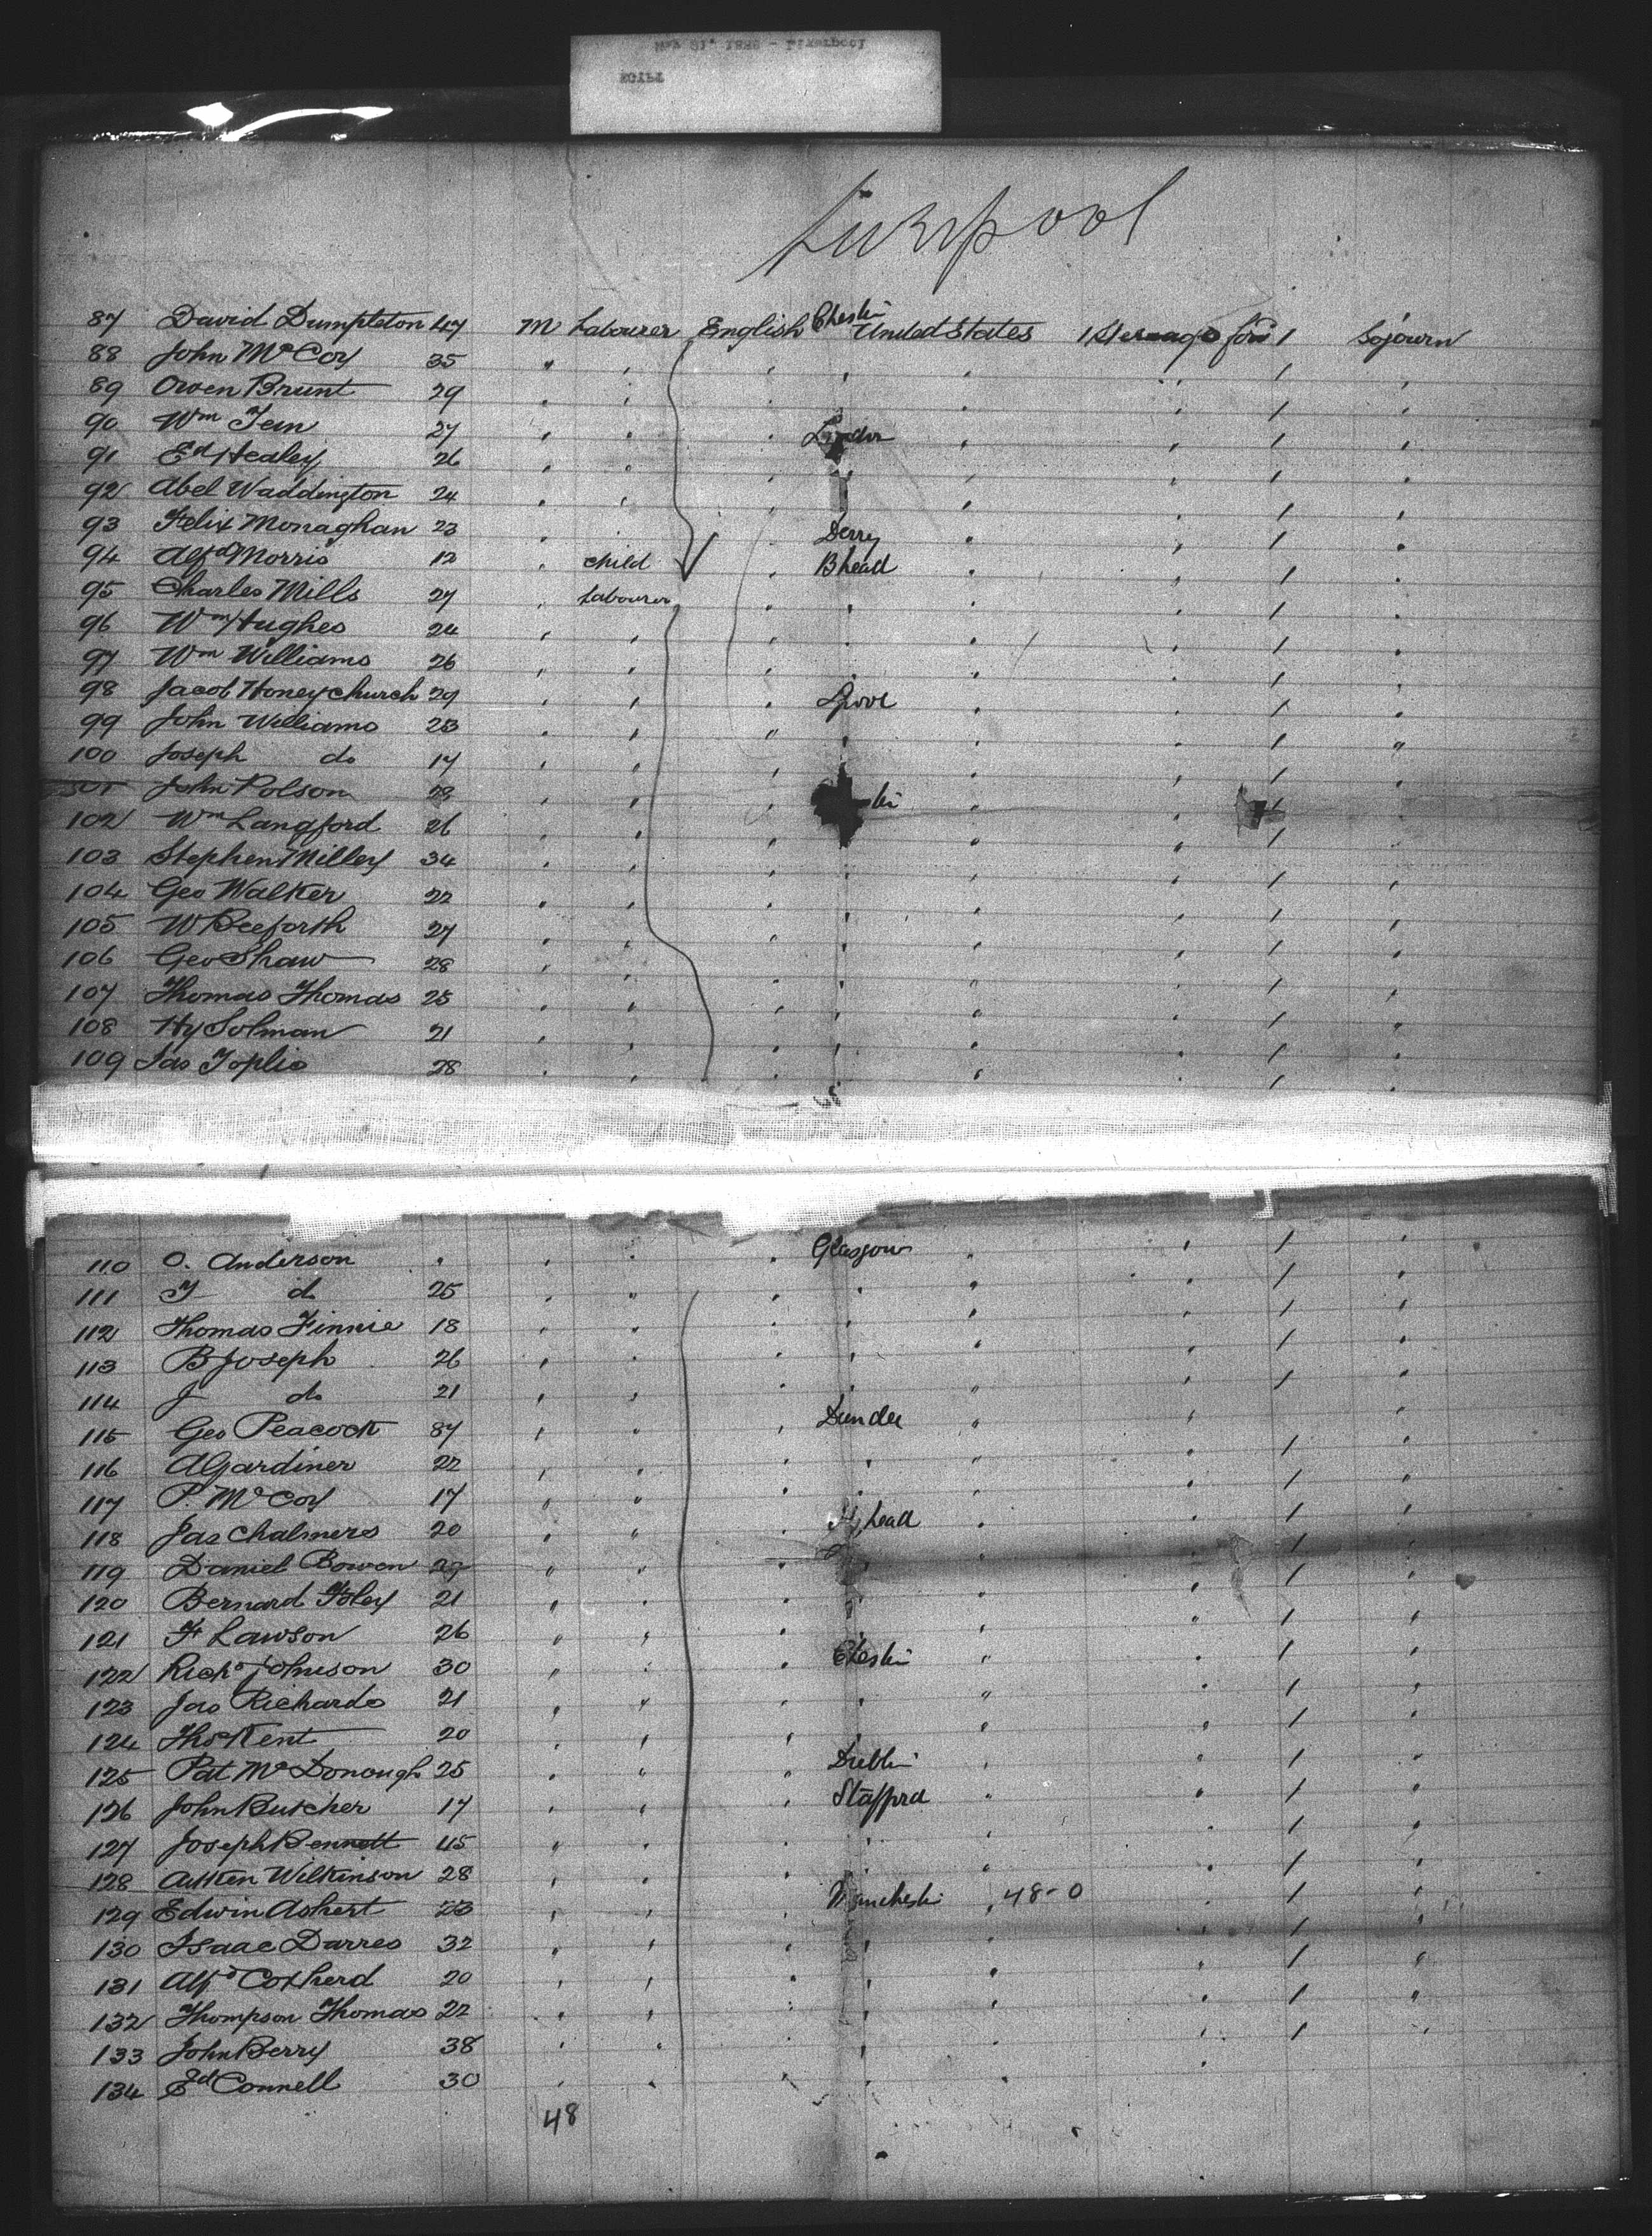 Liverpool
87 David Dumpleton 47 M Labourer English Chester United States Steerage for 1 Sojourn
88 John McCoy 35 " " " " " " / "
89 Owen Brunt 29 " " " " " " / "
90 Wm 27 " " " London " " / "
91 Ed Healey 26 " " " " " " / "
92 Abel Waddington 24 " " " " " / "
93 Felix Monaghan 23 " " " Derry " " / "
94 Alfd Morris 12 " child " Bhead " " / "
95 Charles Mills 27 " Labourer " " " " / "
96 Wm Hughes 24 " " " " " " / "
97 Wm Williams 26 " " " " " " / "
98 Jacob Honeychurch 29 " " " Lpool " " / "
99 John Williams 23 " " " " " " / "
100 Joseph do 17 " " " " " " / "
John Polson " " " " " / "
102 Wm Langford 26 " " " " " / "
103 Stephen Milley 34 " " " " " " / "
104 Geo Walker 22 " " " " " " / "
105 W Beeforth 27 " " " " " " / "
106 Geo Shaw 28 " " " " " " / "
107 Thomas Thomas 25 " " " " " " / "
108 Hy Solman 21 " " " " " " / "
109 Jas Toplis 28 " " " " " " / "
110 O. Anderson " " " " Glasgow " " / "
111 T d 25 " " " " " " / "
112 Thomas Finnie 18 " " " " " " / "
113 B Joseph 26 " " " " " " / "
114 J do 21 " " " " " " / "
115 Geo Peacock 37 " " " Dundee " " / "
116 A Gardiner 22 " " " " " " / "
117 P. McCoy 17 " " " " " " / "
118 Jas Chalmers 20 " " " head " " / "
119 Daniel Bowen " " " " " / "
120 Bernard Foley 21 " " " " " / "
121 F Lawson 26 " " " " " " / "
122 Richd Johnson 30 " " " Chester " " / "
123 Jas Richards 21 " " " " " " / "
124 Thos Kent 20 " " " " " " / "
125 Pat McDonough 25 " " " Dublin " " / "
126 John Butcher 17 " " " Stafford " " / "
127 Joseph Bennett 45 " " " " " " / "
128 Wilkinson 28 " " " " " " / "
129 Edwin Ashert 23 " " " Manchester " 48-0 " / "
130 Isaac Darres 32 " " " " " " / "
131 Alfd Coxherd 20 " " " " " " / "
132 Thompson Thomas 22 " " " " " " / "
133 John Berry 38 " " " " " " / "
134 Ed Connell 30 " " " " " "
48